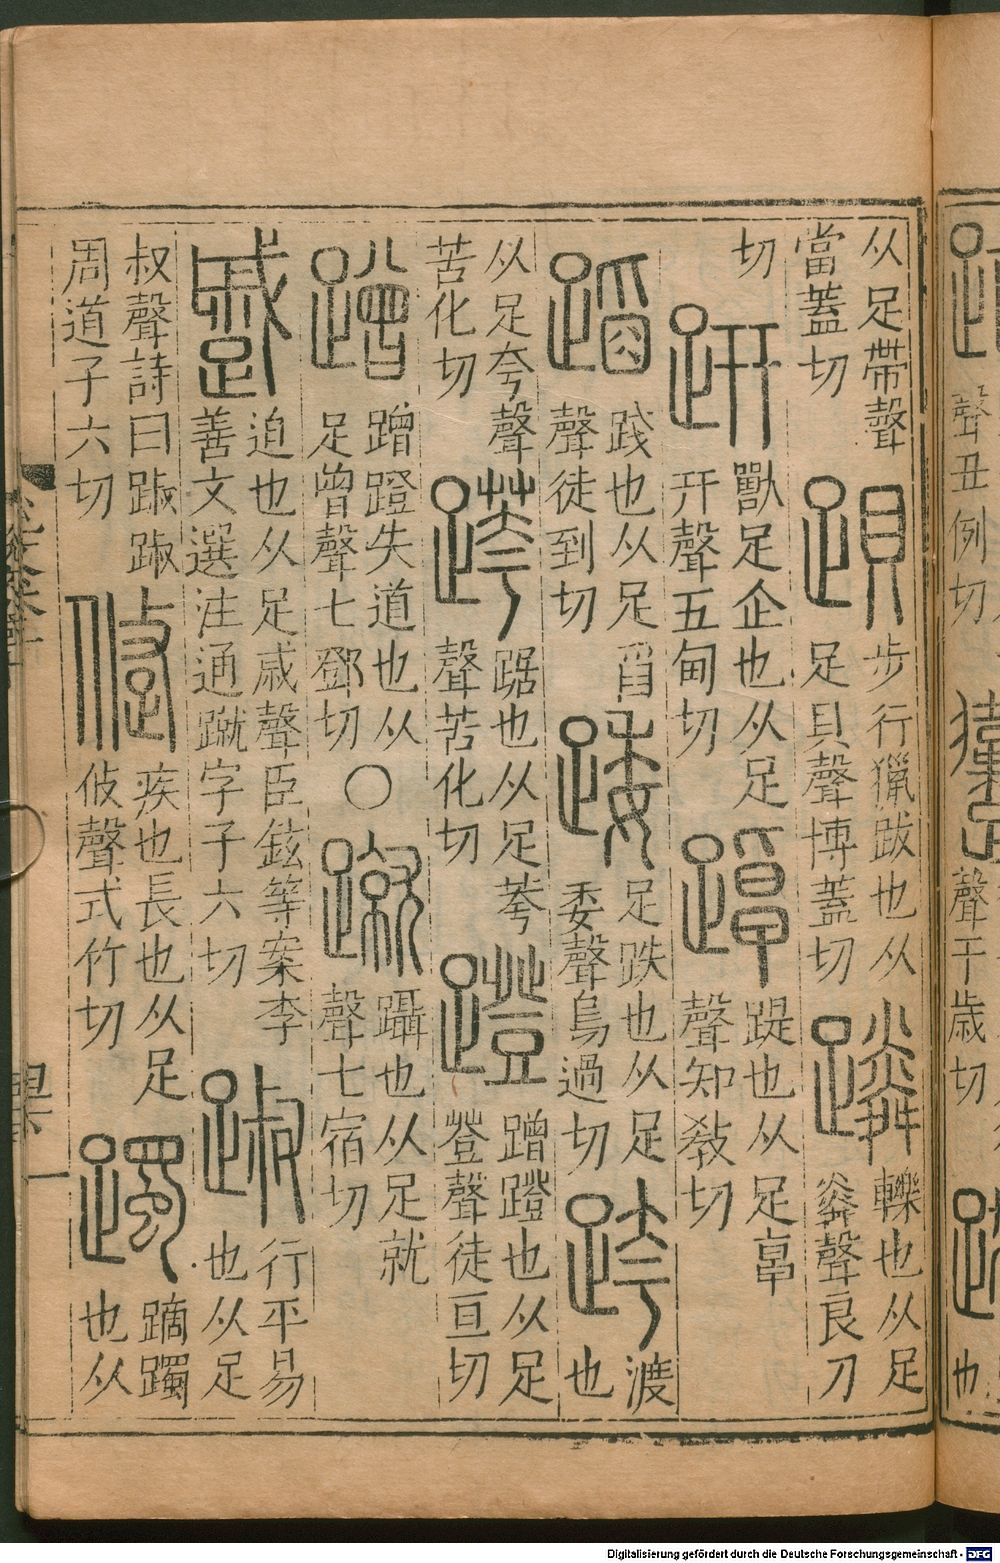 聲丑例切
聲于歲切
也
从足帶聲
當蓋切
䟺
步行獵跋也从
足貝聲博蓋切
蹸
轢也从足
粦聲良刃
切
趼
獸足企也从足
幵聲五甸切
踔
踶也从足卓
聲知敎切
蹈
踐也从足舀
聲徒到切
踒
足跌也从足
委聲烏過切
跨
渡
也
从足夸聲
苦化切
𨂜
踞也从足荂
聲苦化切
蹬
蹭蹬也从足
登聲徒亘切
蹭
蹭蹬失道也从
足曾聲七鄧切
○
蹴
躡也从足就
聲七宿切
蹙
迫也从足戚聲臣鉉等案李
善文選注通蹴字子六切
踧
行平易
也从足
叔聲詩曰踧踧
周道子六切
跾
疾也長也从足
攸聲式竹切
躅
蹢躅
也从
Digitalisierung gefördert durch die Deutsche Forschungsgemeinschaft - DFG